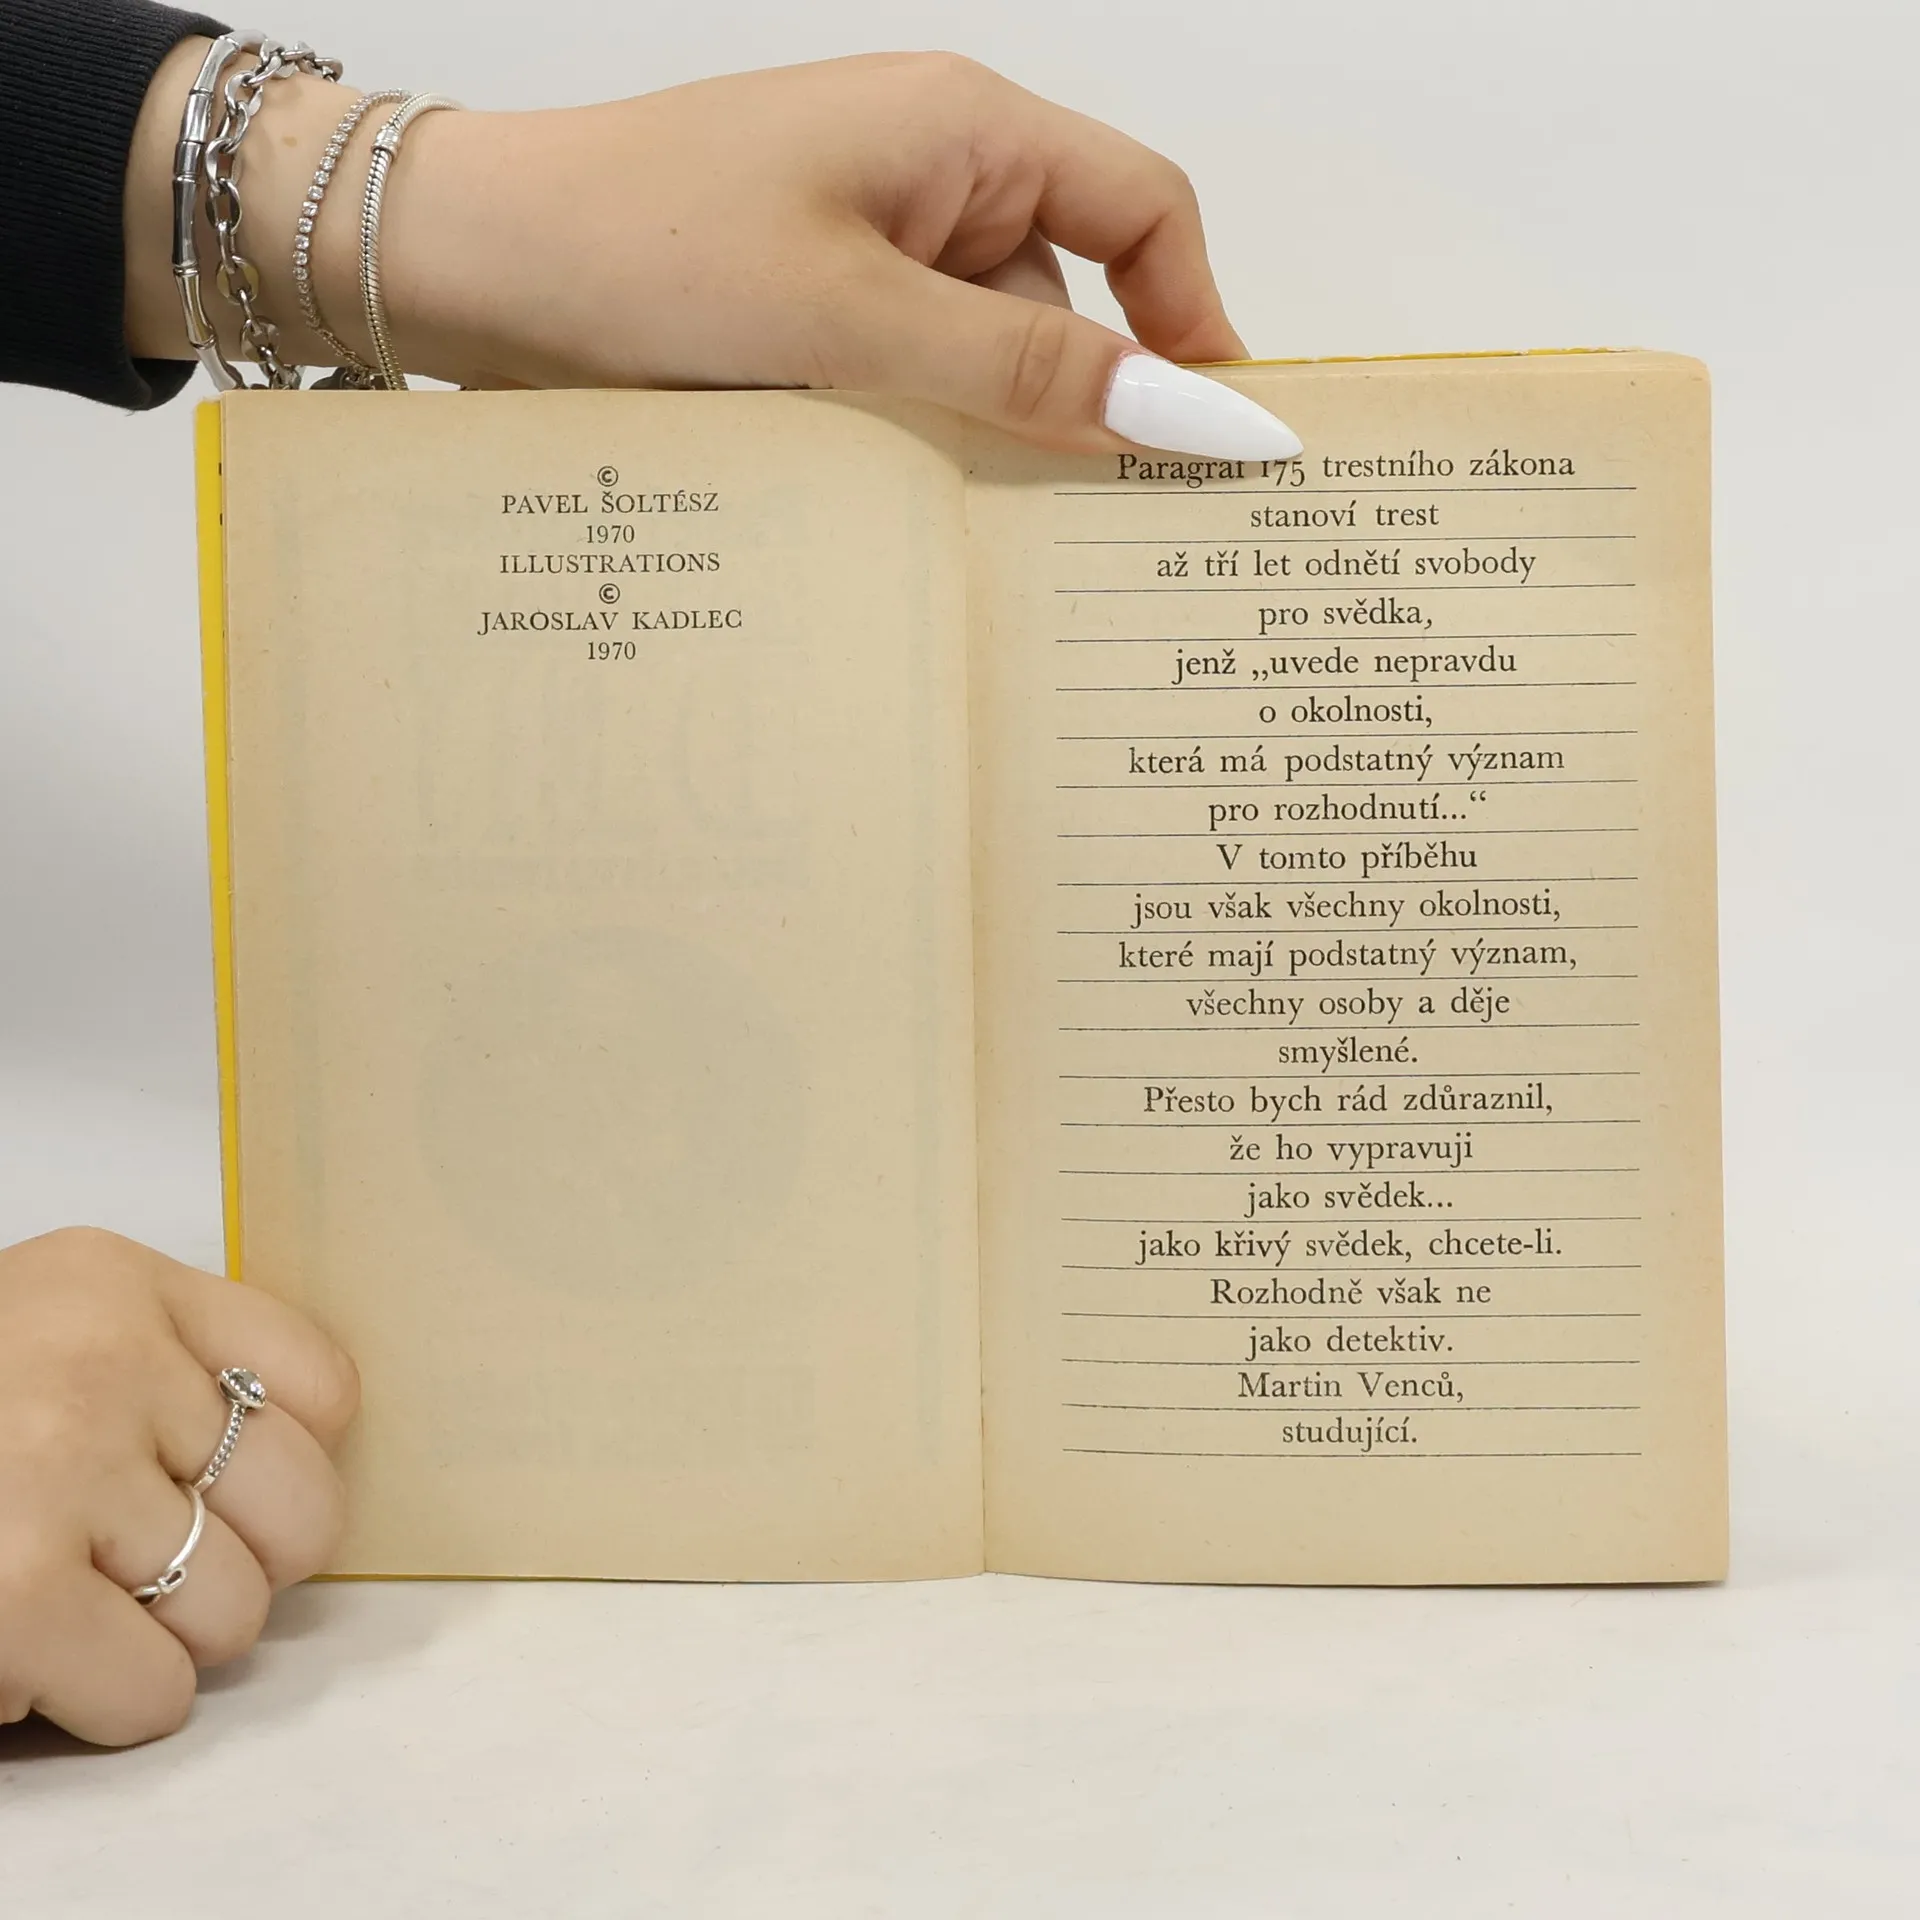 ©
PAVEL ŠOLTÉSZ
1970
ILLUSTRATIONS
©
JAROSLAV KADLEC
1970
Paragraf 175 trestního zákona
stanoví trest
až tří let odnětí svobody
pro svědka,
jenž „uvede nepravdu
o okolnosti,
která má podstatný význam
pro rozhodnutí...“
V tomto příběhu
jsou však všechny okolnosti,
které mají podstatný význam,
všechny osoby a děje
smyšlené.
Přesto bych rád zdůraznil,
že ho vypravuji
jako svědek...
jako křivý svědek, chcete-li.
Rozhodně však ne
jako detektiv.
Martin Venců,
studující.